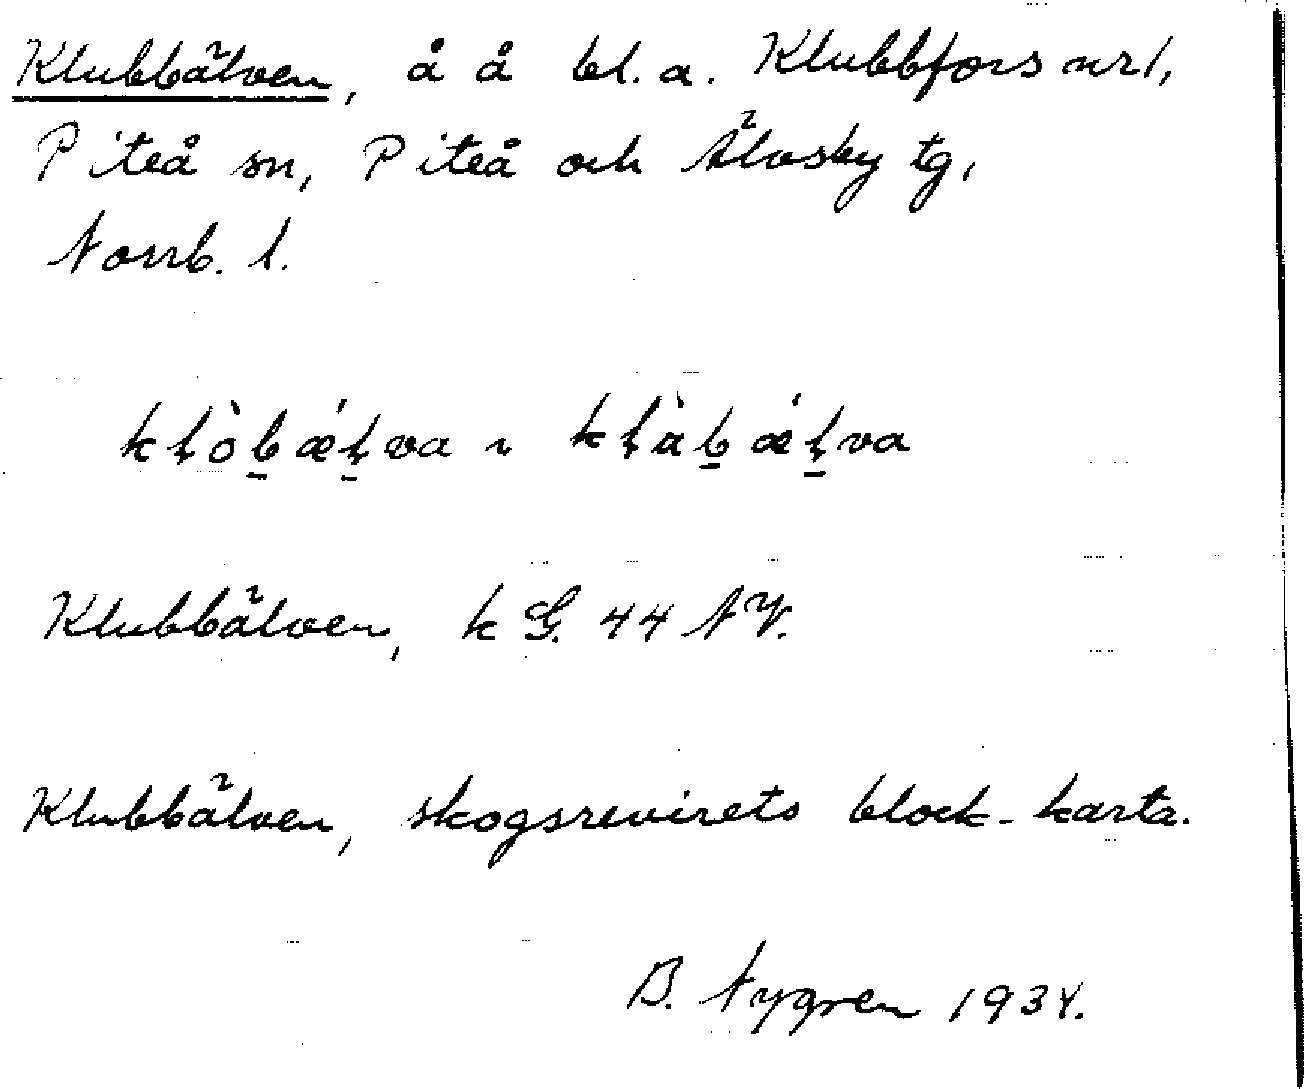 Klubbälven, å å bl. a. Klubbfors nr 1,
Piteå sn, Piteå och Älvsby tg,
Norrb. l.
kḷòb̠ǽḷ̠va ~ kḷàb̠ǽḷ̠va
Klubbälven, k G. 44 NV.
Klubbälven, skogsrevirets block-karta.
B. Nygren 1934.